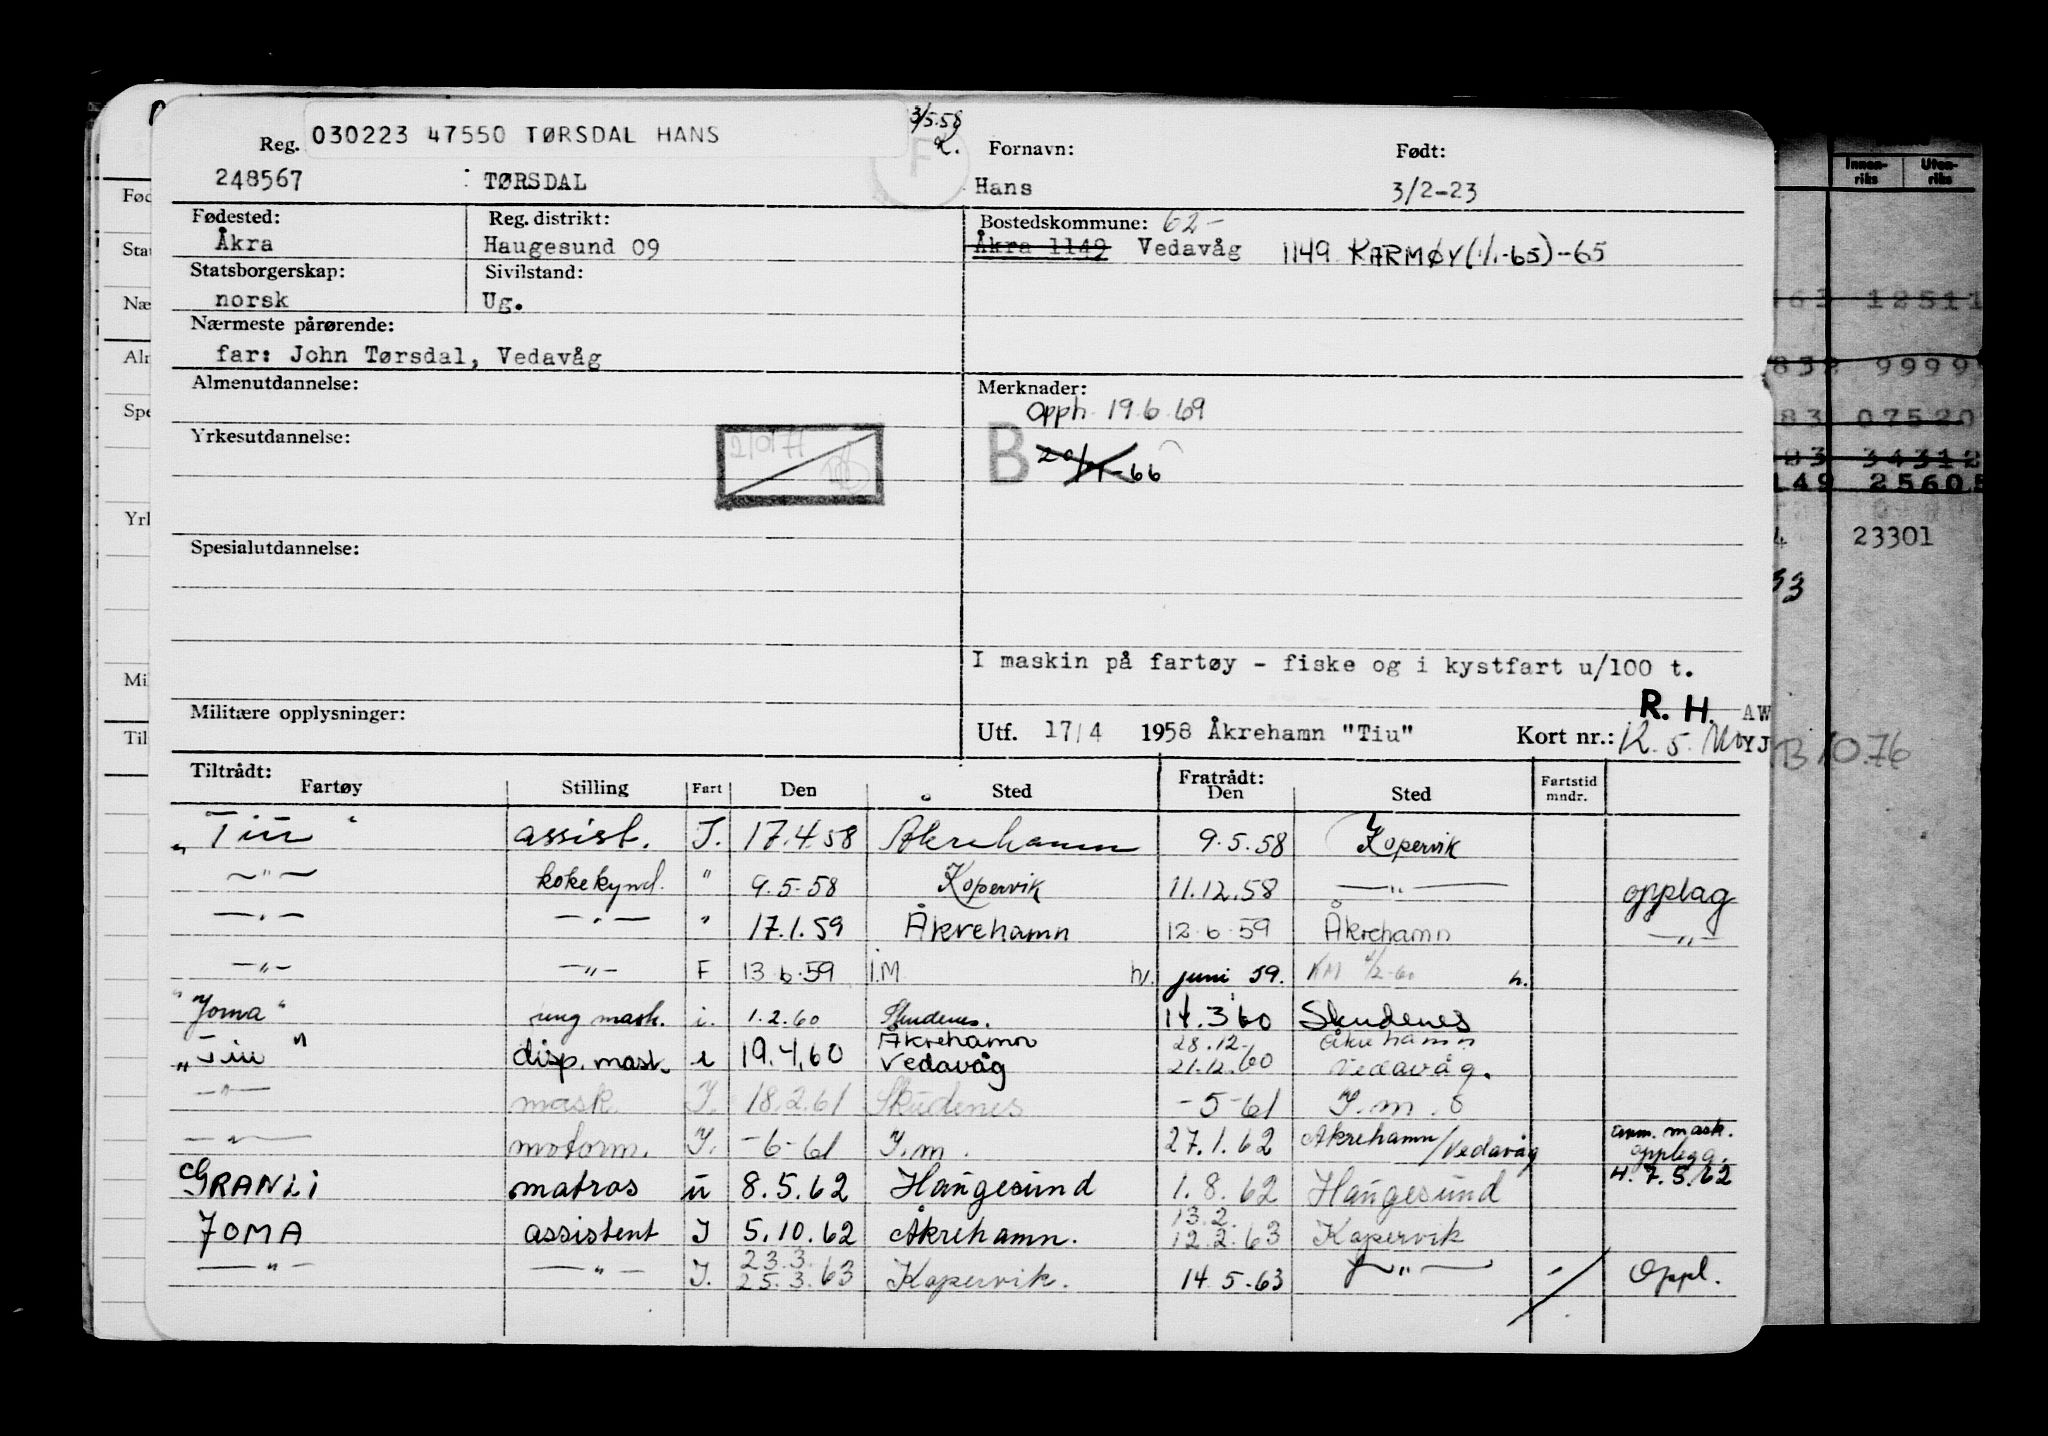 3/5.58
Reg. 030223 47550 TØRSDAL HANS
Fornavn: Født:
248567 TØRSDAL Hans 3/2-23
Fødested: Reg. distrikt: Bostedskommune: 62-
Åkra Haugesund 09 Åkra 1149 Vedavåg 1149 KARMØY (1/1-65)-65
Statsborgerskap: Sivilstand:
norsk Ug.
Nærmeste pårørende:
far: John Tørsdal, Vedavåg
Almenutdannelse: Merknader:
Opph. 19.6.69
Yrkesutdannelse: B
Spesialutdannelse:
I maskin på fartøy - fiske og i kystfart u/100 t.
R. H. AW
Militære opplysninger: Utf. 17/4 1958 Åkrehamn "Tiu" Kort nr.: K. 5.
B 10.76
Tiltrådt: Fratrådt:
Fartøy Stilling Fart Den Sted Den Sted Fartstid mndr.
"Tiu" assist. I. 17.4.58 Åkrehamn 9.5.58 Kopervik
—"— kokekynd. " 9.5.58 Kopervik 11.12.58 —"— opplag
—"— —"— " 17.1.59 Åkrehamn 12.6.59 Åkrehamn —"—
—"— —"— F 13.6.59 I.M. h. juni 59. h.
"Joma" ung mask. i. 1.2.60 Skudenes. 14.3.60 Skudenes
Åkrehamn 28.12- Åkrehamn
"Tiu" disp. mask. i 19.4.60 Vedavåg 21.12.60 Vedavåg.
—"— mask. I. 18.2.61 Skudenes -5-61 I.m.
—"— motorm. I. -6-61 I.m. 27.1.62 Åkrehamn/Vedavåg anm. mask.
opplegg.
GRANLI matros u 8.5.62 Haugesund 1.8.62 Haugesund 4.7.5.62
13.2.
JOMA assistent I 5.10.62 Åkrehamn. 12.2.63 Kopervik
23.3.
—"— —"— I. 25.3.63 Kopervik. 14.5.63 —"— Oppl.
Innen-riks Uten-riks
12511
9999
83 07520
83 34312
149 25605
23301
33